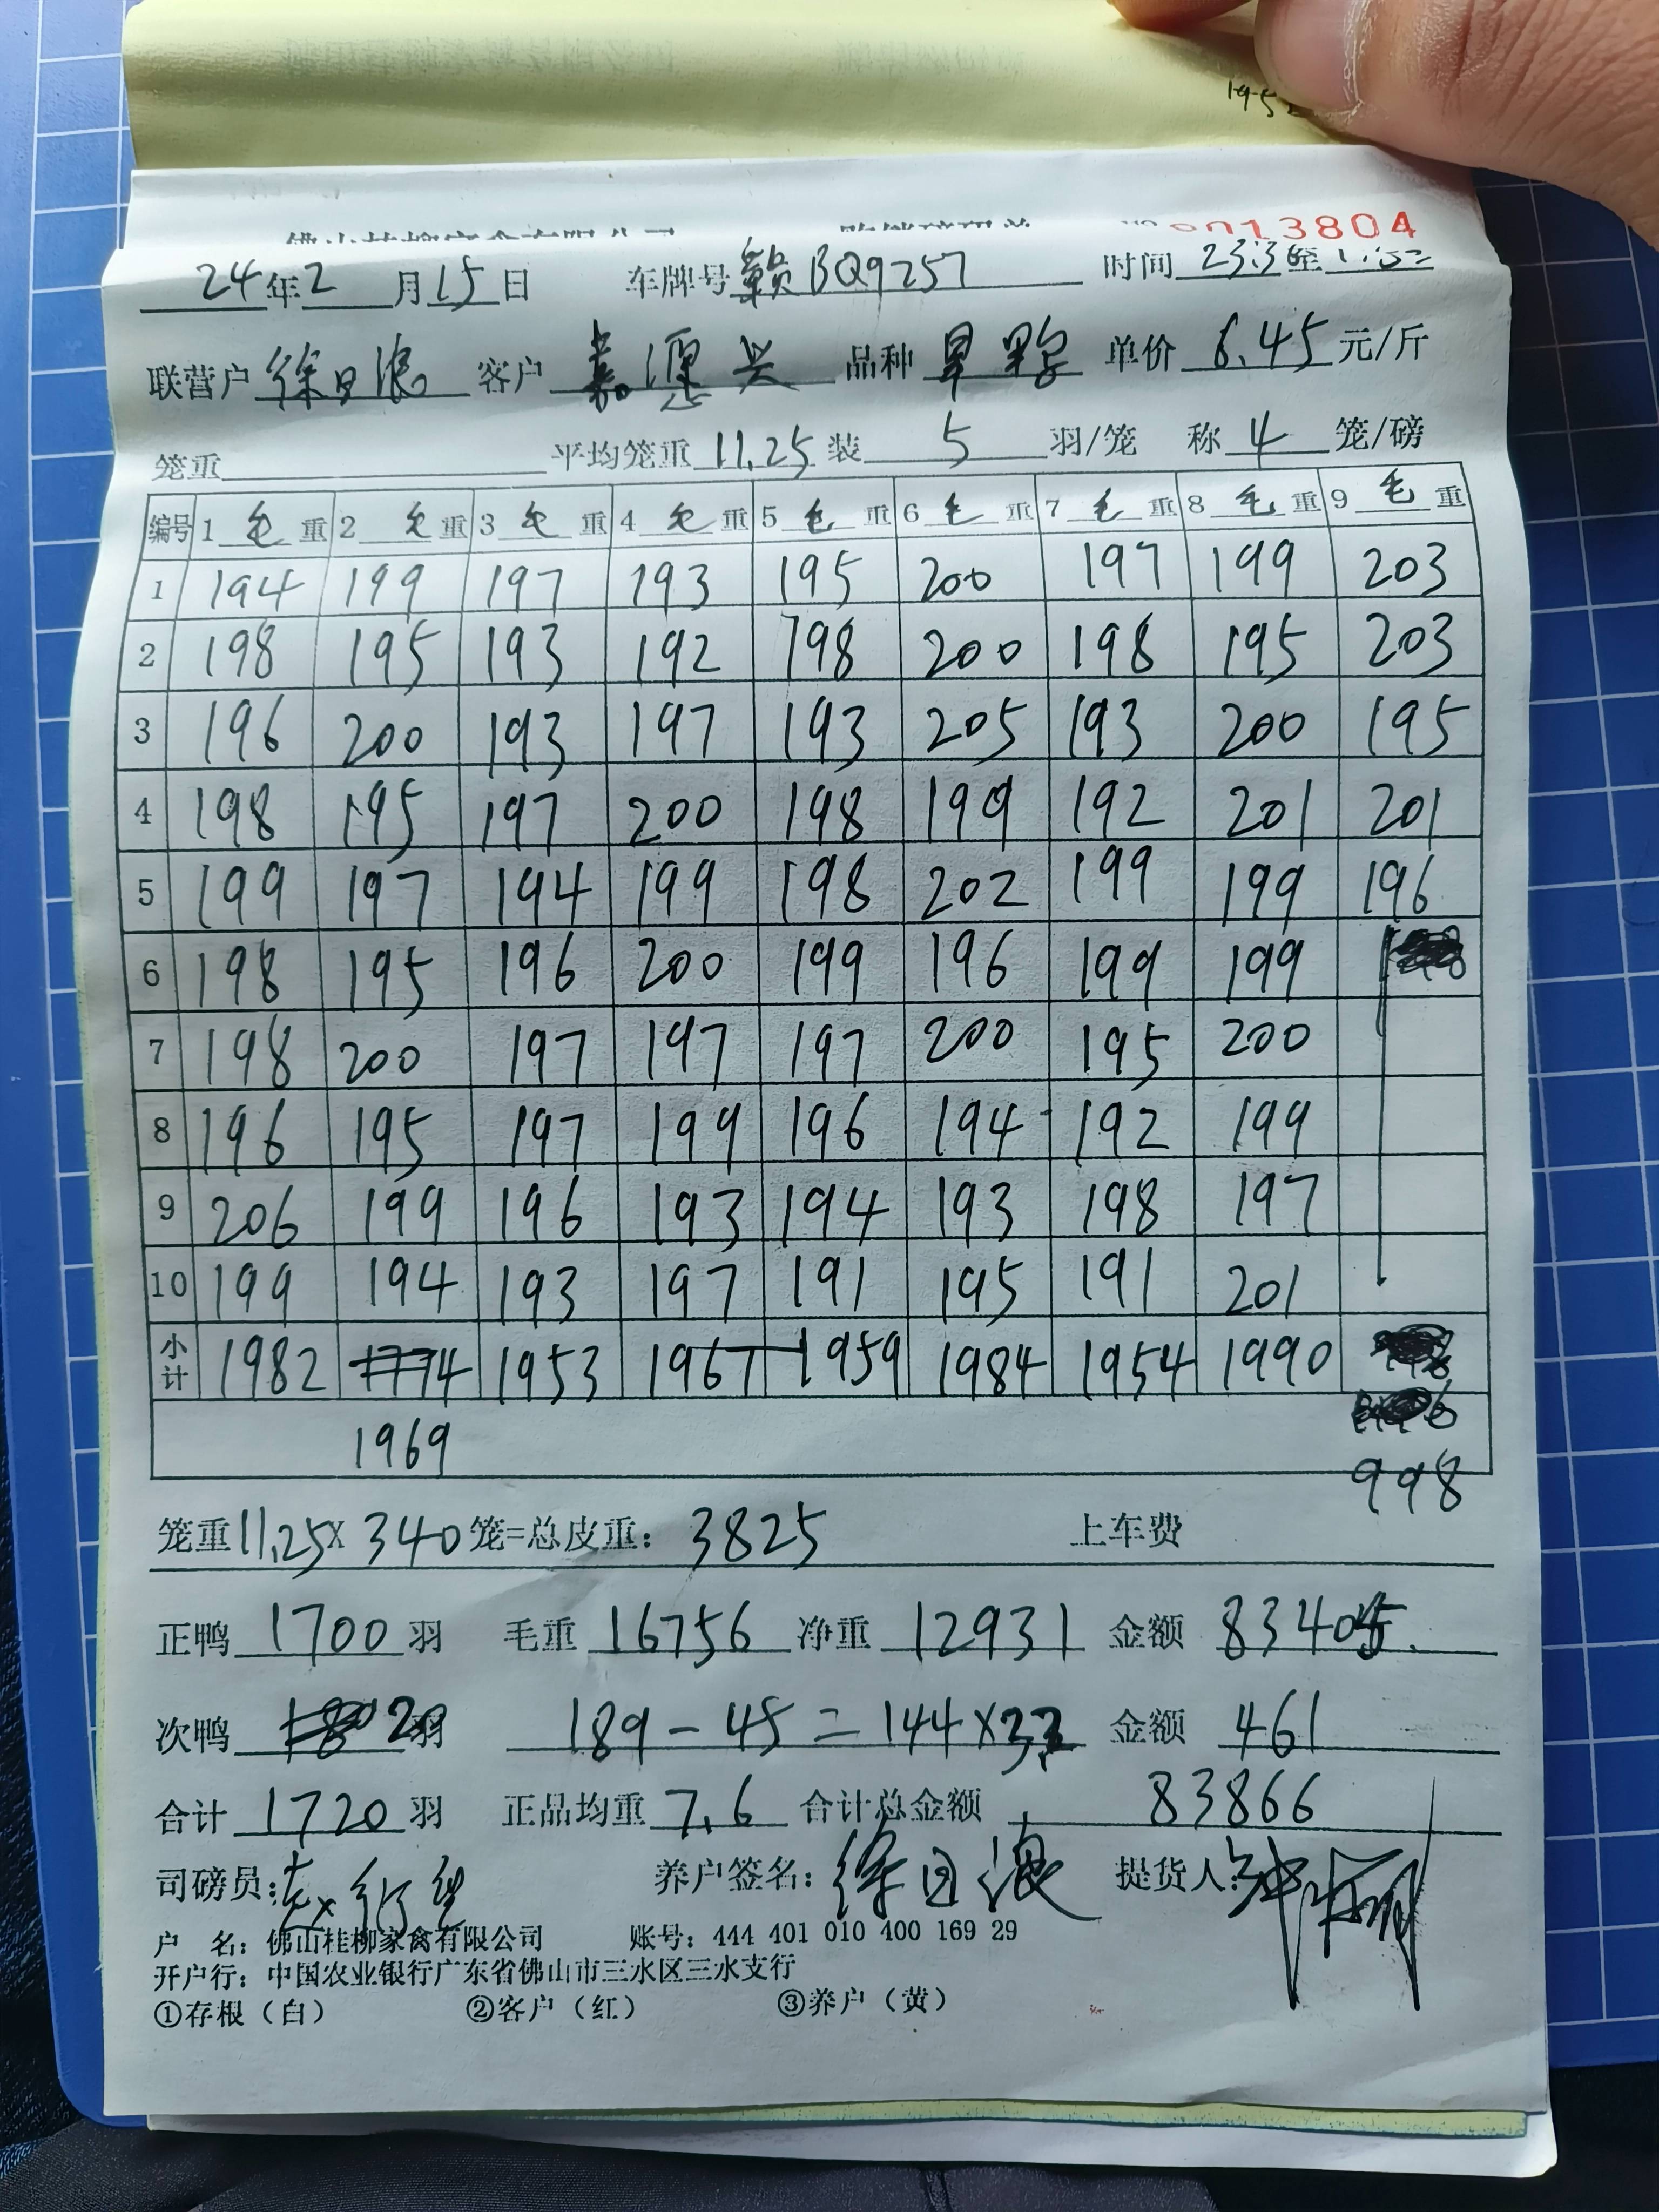 195
13804
24年2月15日 车牌号 赣BQ9257 时间 23:3 至
联营户 徐日浪 客户 嘉源兴 品种 单价 6.45 元/斤
笼重 平均笼重 11.25 装 5 羽/笼 称 4 笼/磅
编号 1 毛 重 2 毛 重 3 毛 重 4 毛 重 5 毛 重 6 毛 重 7 毛 重 8 毛 重 9 毛 重
1 194 199 197 193 195 200 197 199 203
2 198 195 193 192 198 200 198 195 203
3 196 200 193 197 193 205 193 200 195
4 198 195 197 200 198 199 192 201 201
5 199 197 194 199 198 202 199 199 196
6 198 195 196 200 199 196 199 199
7 198 200 197 197 197 200 195 200
8 196 195 197 199 196 194 192 199
9 206 199 196 193 194 193 198 197
10 199 194 193 197 191 195 191 201
小计 1982 1953 1967 1959 1984 1954 1990
1969
998
笼重 11.25 × 340 笼=总皮重: 3825 上车费
正鸭 1700 羽 毛重 16756 净重 12931 金额 83405.
次鸭 20 羽 189-45=144×3.2 金额 461
合计 1720 羽 正品均重 7.6 合计总金额 83866
司磅员: 养户签名: 徐日浪 提货人:
户 名: 佛山桂柳家禽有限公司 账号: 444 401 010 400 169 29
开户行: 中国农业银行广东省佛山市三水区三水支行
①存根（白） ②客户（红） ③养户（黄）